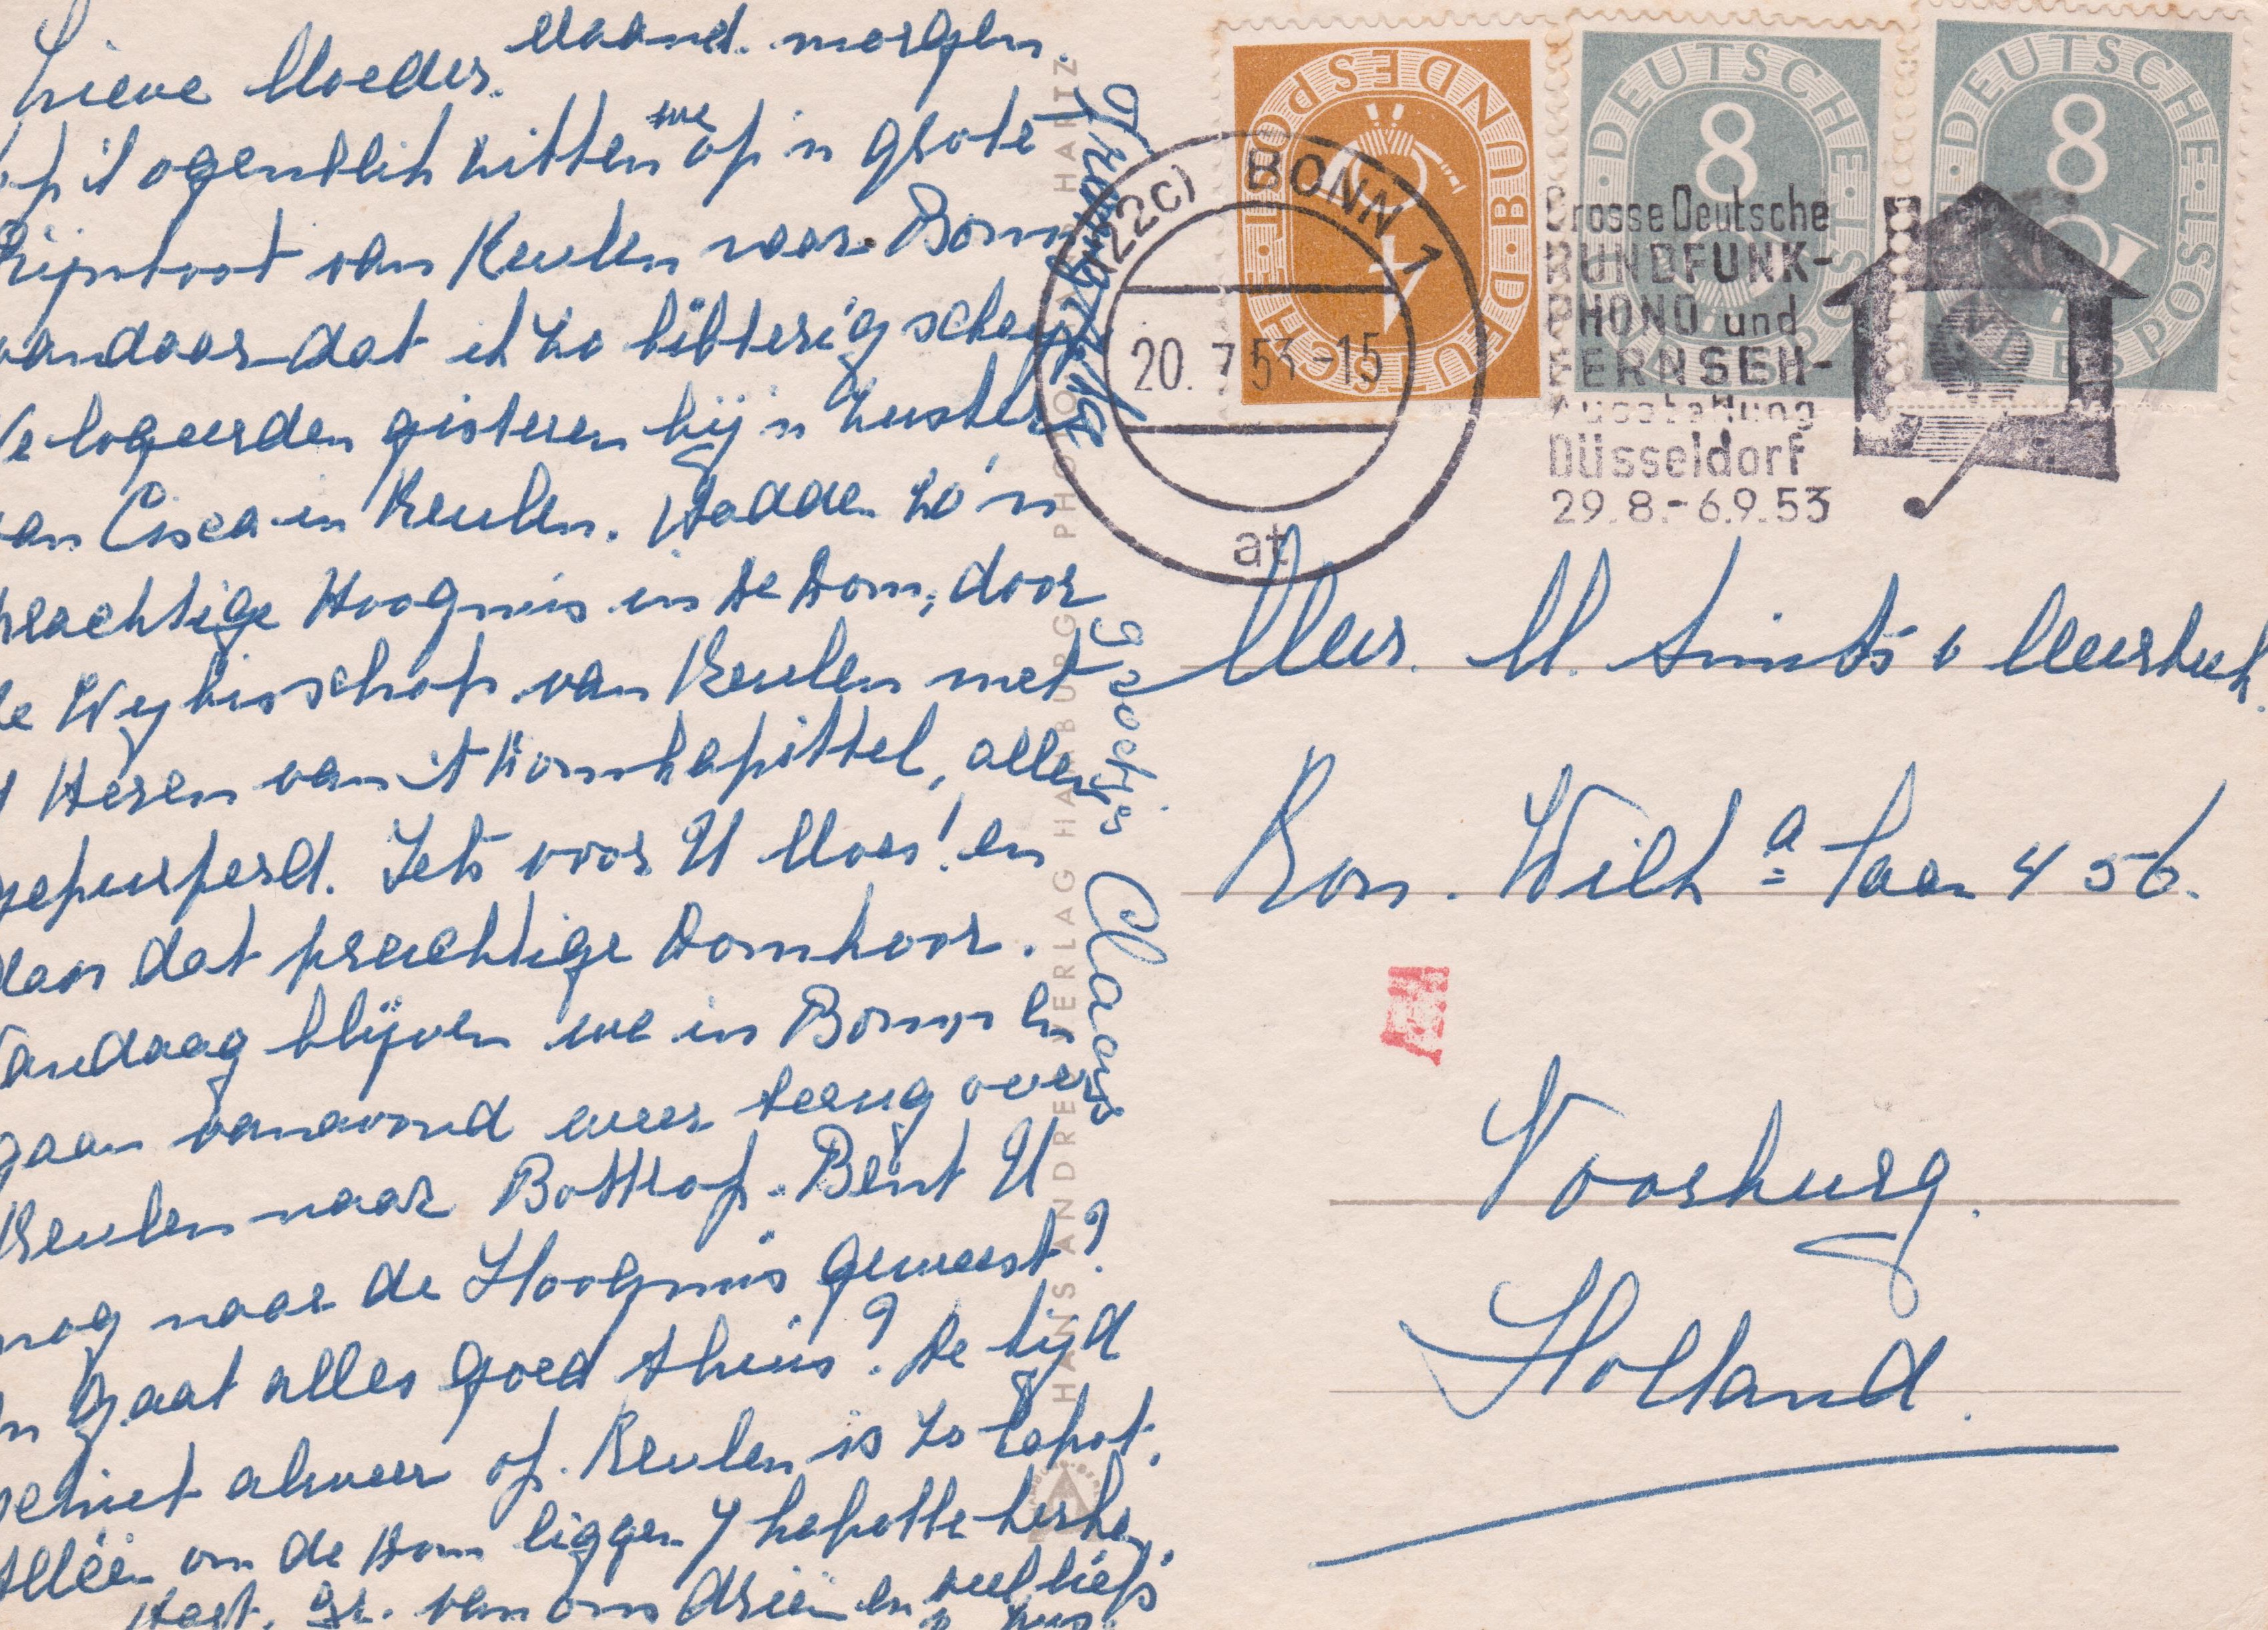 Maand. morgen.
Lieve Moeder.
op 't ogenblik zitten we op 'n grote
Rijnboot van Keulen naar Bonn,
vandaar dat ik zo bibberig schryf.
We logeerden gisteren bij 'n zuster
van Cisca in Keulen. Hadden zo'n
prachtige Hoogmis in de Dom, door
de Wybisschop van Keulen met
Heren van 't Domkapittel, allen
gepurperd. Iets voor U Moes! en
dan dat prachtige Domkoor.
Vandaag blijven we in Bonn en
gaan vanavond weer terug over
Keulen naar Bottrop. Bent U
nog naar de Hoogmis geweest?
En gaat alles goed thuis? De tijd
schiet alweer op. Keulen is zo kapot.
Alléén om de Dom liggen 7 kapotte kerken.
Hart. gr. van ons drieën en veel liefs
Truus
Groetjes Claar
HANS ANDRES VERLAG HAMBURG PHOTO HARTZ
(22c) BONN 1
20. 7. 53 -15
at
DEUTSCHE BUNDESPOST
4
DEUTSCHE BUNDESPOST
8
DEUTSCHE BUNDESPOST
8
Grosse Deutsche
RUNDFUNK-
PHONO und
FERNSEH-
Ausstellung
Düsseldorf
29.8.-6.9.53
Mevr. M. Smits v Meerbeek.
Kon. Wilh.a laan 456.
Voorburg.
Holland.